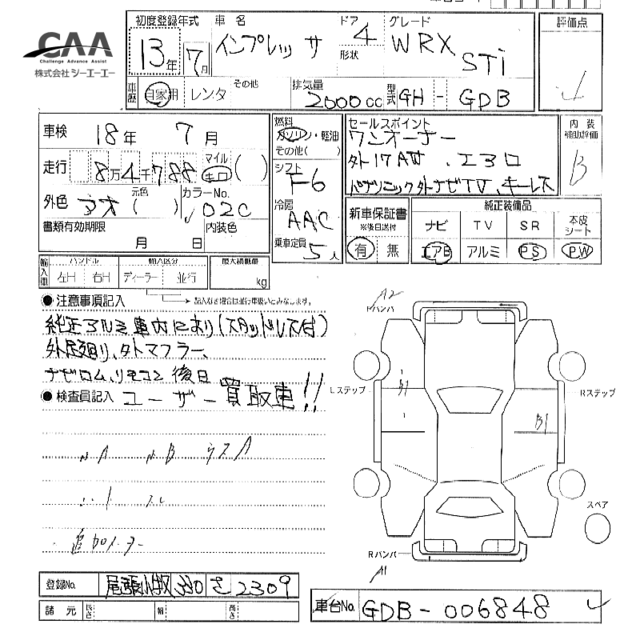 CAA
Challenge Advance Assist
株式会社 シーエーエー
初度登録年式 車名 ドア グレード 評価点
13年 7月 インプレッサ 4 WRX STi
形状
車歴 自家用 レンタ その他 排気量 2000cc 型式 GH-GDB
車検 18年 7月
走行 8万4千788 マイル キロ ( )
外色 アオ 元色 ( ) カラーNo. 02C
書類有効期限 月 日 内装色
燃料 ガソリン・軽油
その他( )
シフト F6
冷房 AAC
乗車定員 5人
セールスポイント
ワンオーナー
外17AW、エアロ
パナソニック外ナビTV、キーレス
内装補助評価 B
新車保証書 ※後日送付 有 無
純正装備品
ナビ TV SR 本皮シート
エアB アルミ PS PW
輸入車 ハンドル 輸入区分 最大積載量
左H 右H ディーラー 並行 kg
●注意事項記入 → 記入なき場合は並行車扱いとみなします。
純正アルミ車内にあり(スタッドレス付)
外足廻り、外マフラー、
ナビロム、リモコン後日
●検査員記入 ユーザー買取車!!
追加メーター
A2
Fバンパ
Lステップ
Rステップ
B1
B1
スペア
Rバンパ
A1
登録No. 尾張小牧 330 さ 2309
諸元 長さ 幅 高さ
車台No. GDB-006848